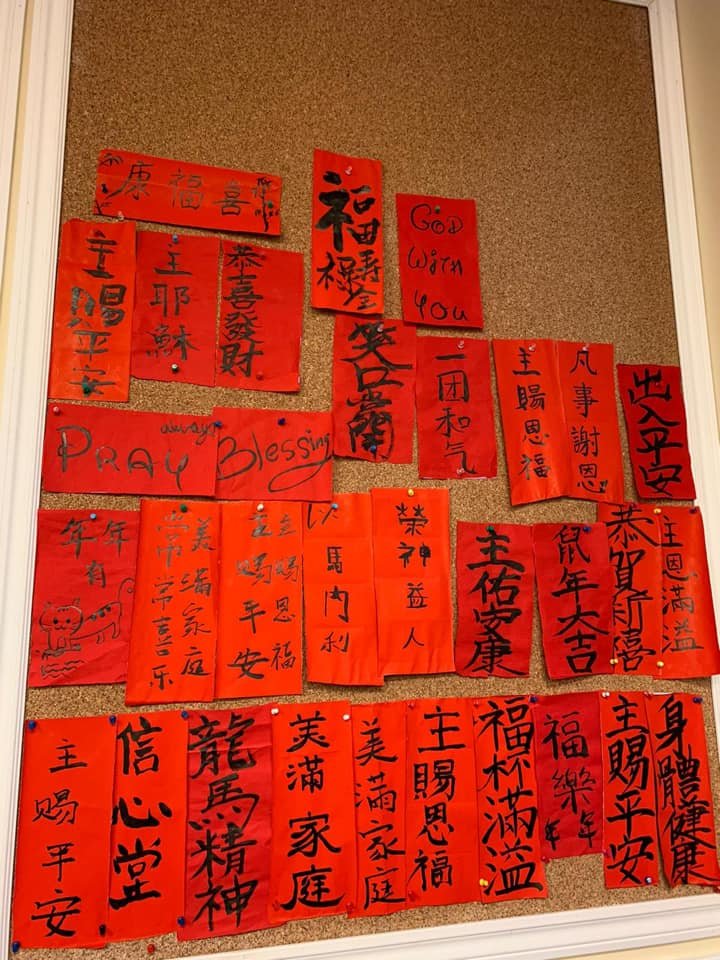 康福喜
福祿壽全
GOD
With
YOU
主賜平安
主耶穌
恭喜發財
笑口常開
一团和气
主賜恩福
凡事謝恩
出入平安
PRAY always
Blessing
年年有
美滿家庭
常常喜乐
主賜恩福
主賜平安
以馬内利
榮神益人
主佑安康
鼠年大吉
恭賀新禧
主恩滿溢
主賜平安
信心堂
龍馬精神
美滿家庭
美滿家庭
主賜恩福
福杯滿溢
福樂年年
主賜平安
身體健康